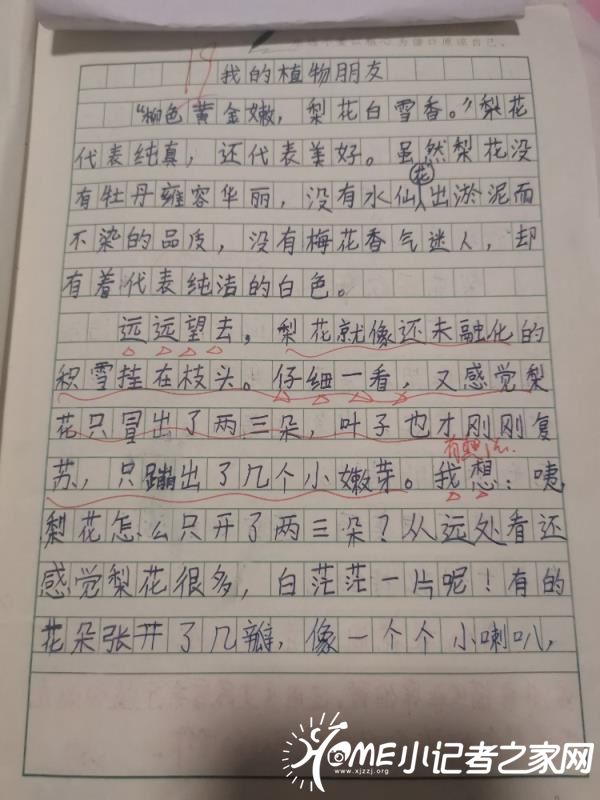 我的植物朋友
“柳色黄金嫩，梨花白雪香。”梨花
代表纯真，还代表美好。虽然梨花没
有牡丹雍容华丽，没有水仙花出淤泥而
不染的品质，没有梅花香气迷人，却
有着代表纯洁的白色。
远远望去，梨花就像还未融化的
积雪挂在枝头。仔细一看，又感觉梨
花只冒出了两三朵，叶子也才刚刚复
苏，只蹦出了几个小嫩芽。我想：咦
梨花怎么只开了两三朵？从远处看还
感觉梨花很多，白茫茫一片呢！有的
花朵张开了几瓣，像一个个小喇叭，
HOME小记者之家网
www.xjzzj.org